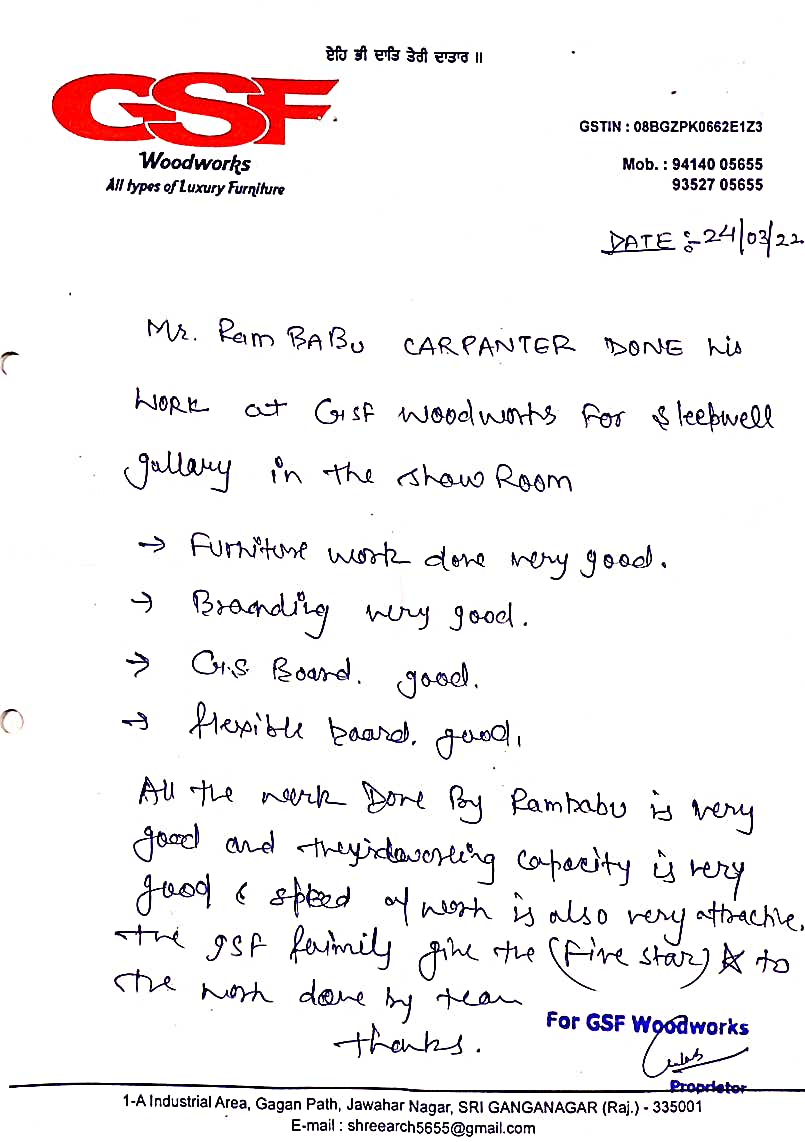 ਏਹਿ ਭੀ ਦਾਤਿ ਤੇਰੀ ਦਾਤਾਰ ॥
GSF
Woodworks
All types of Luxury Furniture
GSTIN : 08BGZPK0662E1Z3
Mob. : 94140 05655
93527 05655
DATE :- 24/03/22
Mr. Ram BABU CARPANTER DONE his
WORK at GSF woodworks For Sleepwell
gallary in the show Room
→ Furniture work done very good.
→ Branding very good.
→ G.S. Board. good.
→ flexible board. good.
All the work Done By Rambabu is very
good and capacity is very
good & speed of work is also very attractive.
the GSF faimily give the (Five star) ☆ to
the work done by team
thanks.
For GSF Woodworks
Proprietor
1-A Industrial Area, Gagan Path, Jawahar Nagar, SRI GANGANAGAR (Raj.) - 335001
E-mail : shreearch5655@gmail.com